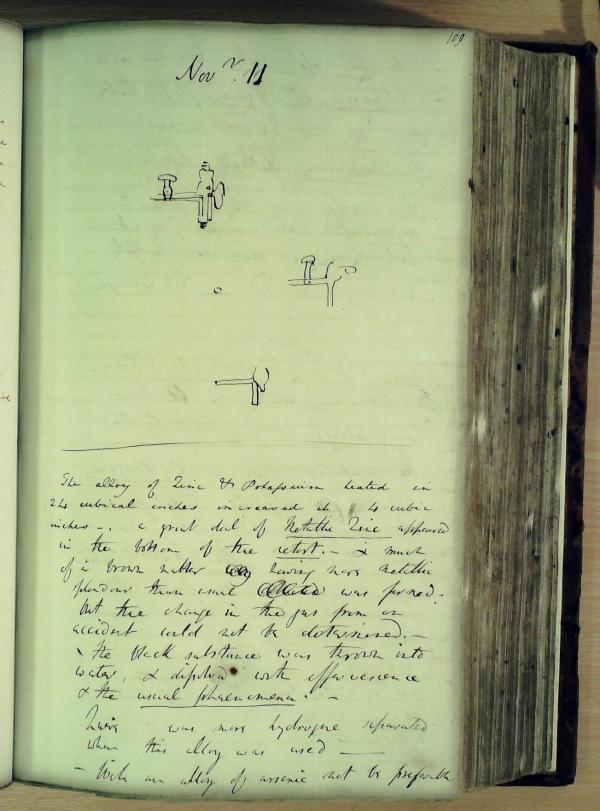 109
Novr. 11
The alloy of Zinc & Potassium heated in
24 cubical inches increased it 4 cubic
inches -. a great deal of Metallic Zinc appeared
in the bottom of the retort. - & much
of a brown matter having more metallic
splendour than usual was formed.
but the change in the gas from an
accident could not be determined. -
- The black substance was thrown into
water, & dissolved with effervescence
& the usual phaenomena. -
was more hydrogene separated
when this alloy was used —
- With an alloy of arsenic not be preferable